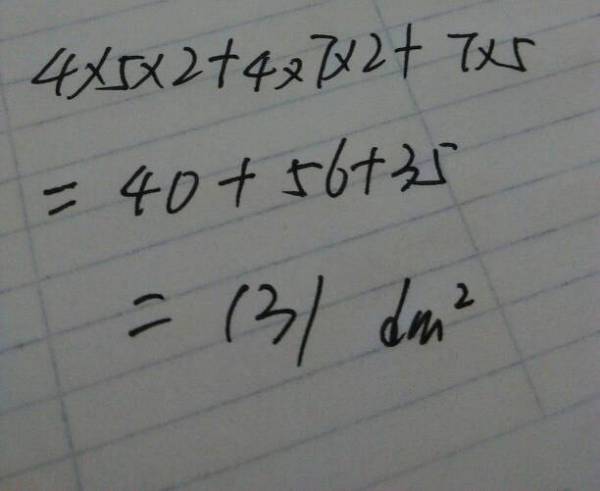 4×5×2+4×7×2+7×5
=40+56+35
=131 dm²